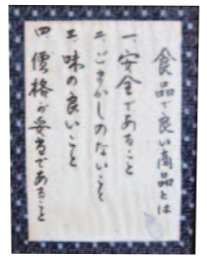 食品で良い商品とは
一、安全であること
二、ごまかしのないこと
三、味の良いこと
四、價格が妥当であること